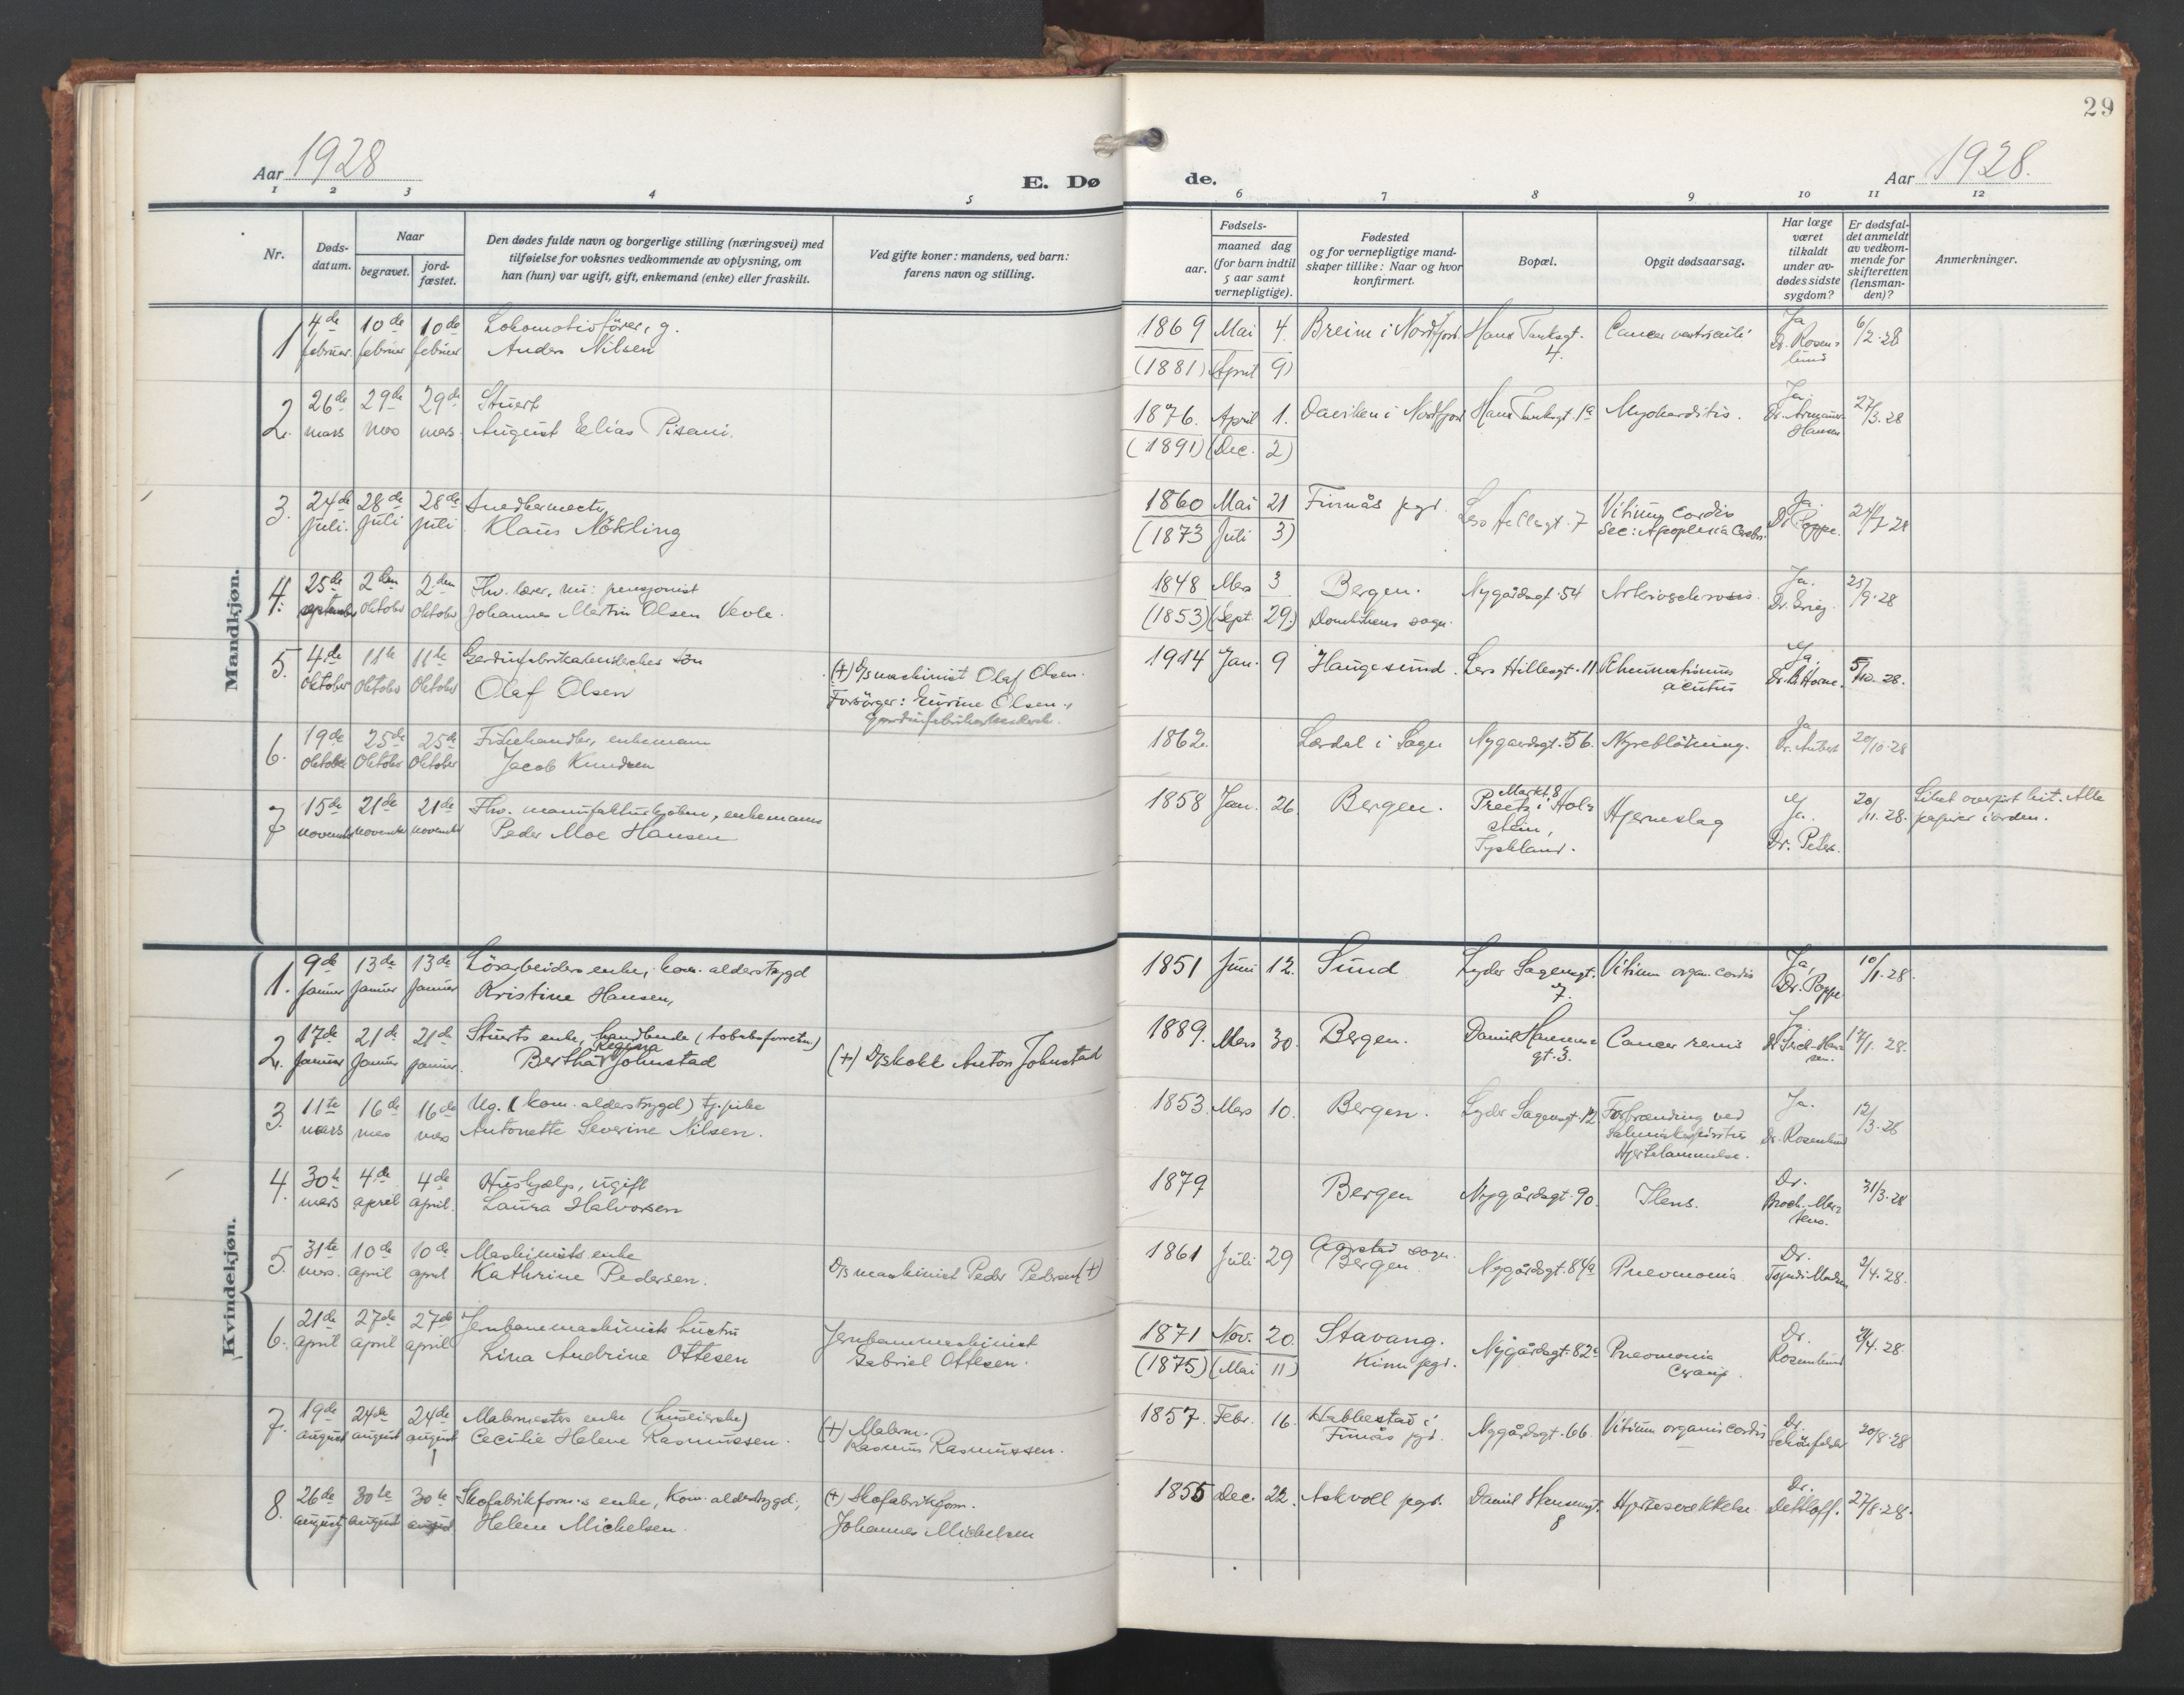 29
Aar 1928
E. Dø
de.
Aar 1928.
1 2 3 4 5 6 7 8 9 10 11 12
Nr.
Døds-
datum.
Naar
begravet.
jord-
fæstet.
Den dødes fulde navn og borgerlige stilling (næringsvei) med
tilføielse for voksnes vedkommende av oplysning, om
han (hun) var ugift, gift, enkemand (enke) eller fraskilt.
Ved gifte koner: mandens, ved barn:
farens navn og stilling.
Fødsels-
aar.
maaned dag
(for barn indtil
5 aar samt
vernepligtige).
Fødested
og for vernepligtige mand-
skaper tillike: Naar og hvor
konfirmert.
Bopæl.
Opgit dødsaarsag.
Har læge
været
tilkaldt
under av-
dødes sidste
sygdom?
Er dødsfal-
det anmeldt
av vedkom-
mende for
skifteretten
(lensman-
den)?
Anmerkninger.
Mandkjøn.
1 4de februar. 10de februar 10de februar
Lokomotivfører, g.
Anders Nilsen
1869 Mai 4. Breim i Nordfjord. Hans Tanksgt. 4. Cancer ventriculi Ja Dr. Rosenlund 6/2-28
(1881) (April 9)
2. 26de mars 29de mars 29de mars.
Stuert
August Elias Pisani.
1876. April 1. Daviken i Nordfjord Hans Tanksgt. 1a Myokarditis. Ja. Dr. Armauer Hansen 27/3-28
(1891) (Dec. 2)
3. 24de juli. 28de juli 28de juli
Snedkermester
Klaus Nökling
1860 Mai 21 Finnås pgd. Lars Hillesgt. 7 Vitium Cordis Ja. Dr Poppe. 24/7-28
Sec: Apoplexia Cerebri
(1873 Juli 3)
4. 25de september 2den oktober 2den oktober
Fhv. lærer, nu: pensjonist
Johannes Martin Olsen Vevle.
1848 Mars 3 Bergen. Nygårdsgt. 54 Arteriosclerosis. Ja. Dr. Grieg 25/9-28
(1853) (Sept. 29.) Domkirkens sogn.
5. 4de oktober 11te oktober 11te oktober
Gardinfabrikarbeiderskes sön
Olaf Olsen
(+) D/s maskinist Olaf Olsen.
Forsörger: Gurine Olsen.,
gardinfabrikarbeiderske.
1914 Jan. 9 Haugesund. Lars Hillesgt. 11 Rheumatismus acutus Ja. Dr. Horne. 5/10-28.
6. 19de oktober 25de oktober 25de oktober
Fiskehandler, enkemann
Jacob Knudsen
1862. Lærdal i Sogn Nygaardsgt. 56. Nyreblödning. Ja Dr. Aubert 20/10-28
7 15de november 21de november 21de november
Fhv. manufakturkjöbm, enkemann
Peder Moe Hansen
1858 Jan. 26. Bergen. Markt 8 Preetz i Holstein, Tyskland. Hjerneslag Ja. Dr. Peters. 20/11-28. Liket overfört hit. Alle papirer i orden.
Kvindekjøn.
1. 9de januar 13de januar 13de januar
Lösarbeiders enke, kom. alderstrygd
Kristine Hansen,
1851 Juni 12. Sund Lyder Sagensgt. 7. Vitium organ. cordis Ja, Dr. Poppe 10/1-28.
2. 17de januar 21de januar 21de januar.
Stuerts enke, handlende (tobaksforretn.)
Bertha Regina Johnstad
(+) D/s kokk Anton Johnstad
1889. Mars 30. Bergen. Daniel Hansensgt. 3. Cancer renis 17/1 28.
3. 11te mars 16de mars 16de mars
Ug. (kom. alderstrygd) tj.pike
Antonette Severine Nilsen.
1853. Mars 10. Bergen. Lyder Sagensgt. 12 Forbrænding ved Ja. Dr. Rosenlund 12/3-28
Hjertelammelse.
4. 30te mars 4de april 4de april.
Hushjælp, ugift
Laura Halvorsen
1879 Bergen Nygårdsgt. 90. Ilens. Dr. Broch-Martens. 31/3-28
5. 31te mars. 10de april 10de april
Maskinists enke
Kathrine Pedersen.
D/s maskinist Peder Pedersen (+)
1861 Juli 29 Aarstad sogn. Bergen Nygårdsgt. 84a Pneumonia Dr. 2/4-28.
6. 21de april 27de april 27de april
Jernbanemaskinists hustru
Lina Andrine Ottesen
Jernbanemaskinist
Gabriel Ottesen.
1871 Nov. 20. Stavang. Nygårdsgt. 82a Pneumonia Croup. Dr. Rosenlund /4-28.
(1875) (Mai 11) Kinn pgd.
7. 19de august 24de august 24de august
Malermesters enke (huseierske)
Cecilie Helene Rasmussen.
(+) Malerm.
Rasmus Rasmussen.
1857. Febr. 16. Habbestad i Finnås pgd. Nygårdsgt. 66 Vitium organis cordis Dr. Schönfelder 20/8-28
8. 26de august 30te august 30te august
Skofabrikform.s enke, kom. alderstrygd,
Helene Michelsen.
(+) Skofabrikform.
Johannes Michelsen
1855 Dec. 22. Askvoll pgd. Daniel Hansensgt. 8 Hjertesvækkelse Dr. Dethloff. 27/8-28.